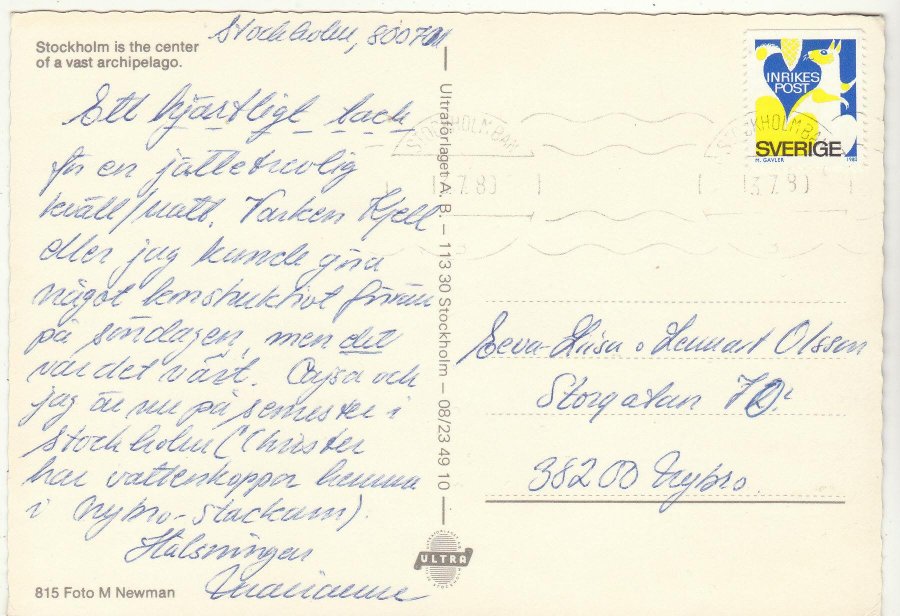 Stockholm is the center
of a vast archipelago.
Stockholm, 800701
Ett hjärtligt tack
för en jättetrevlig
kväll/natt. Varken Kjell
eller jag kunde göra
något konstruktivt förrän
på söndagen, men det
var det värt. Cajsa och
jag är nu på semester i
Stockholm (Christer
har vattenkoppor hemma
i Nybro-stackarn).
Hälsningar
Marianne
815 Foto M Newman
Ultraförlaget A.B. – 113 30 Stockholm – 08/23 49 10
ULTRA
INRIKES
POST
SVERIGE
M. GAVLER 1980
STOCKHOLM BAN
7.80
KHOLM BAN
3 7 80
Eeva-Liisa o Lennart Olsson
Storgatan
382 00 Nybro.